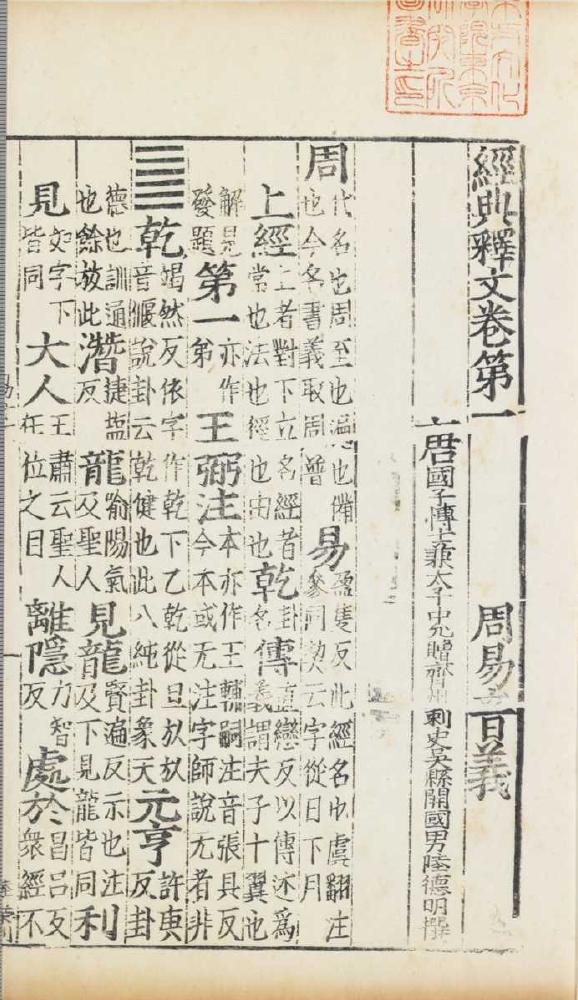 經典釋文卷第一 周易音義
唐國子博士兼太子中允贈齊州刺史吳縣開國男陸德明撰
周代名也周至也遍也備也今名書義取周普易盈隻反此經名也虞翻注參同契云字從日下月
上經上者對下立名經者常也法也徑也由也乾卦名傳直戀反以傳述爲義謂夫子十翼也
解見發題第一亦作弟王弼注本亦作王輔嗣注音張具反今本或无注字師說无者非
䷀乾竭然反依字作乾下乙乾從旦㫃㫃音偃說卦云乾健也此八純卦象天元亨許庚反卦
德也訓通也餘放此潛捷塩反龍喻陽氣及聖人見龍賢遍反示也注及下見龍皆同利
見如字下皆同大人王肅云聖人在位之目離隱力智反處於昌呂反衆經不